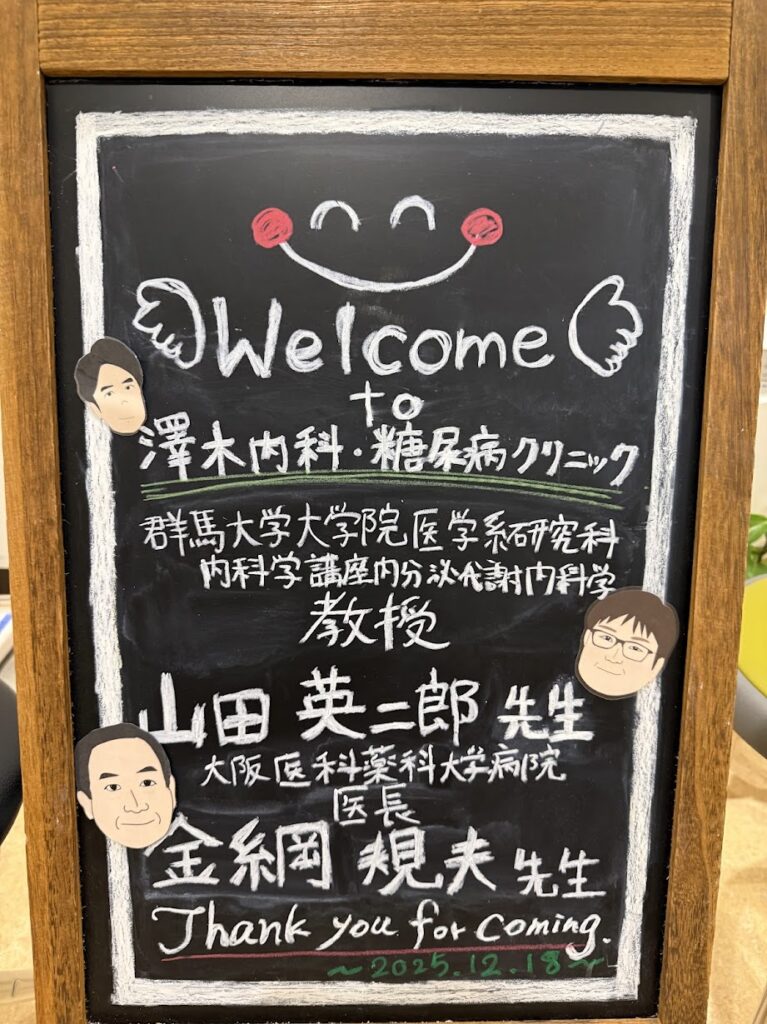 Welcome
to
澤木内科・糖尿病クリニック
群馬大学大学院医学系研究科
内科学講座内分泌代謝内科学
教授
山田 英二郎 先生
大阪医科薬科大学病院
医長
金綱 規夫 先生
Thank you for coming.
~2025.12.18~